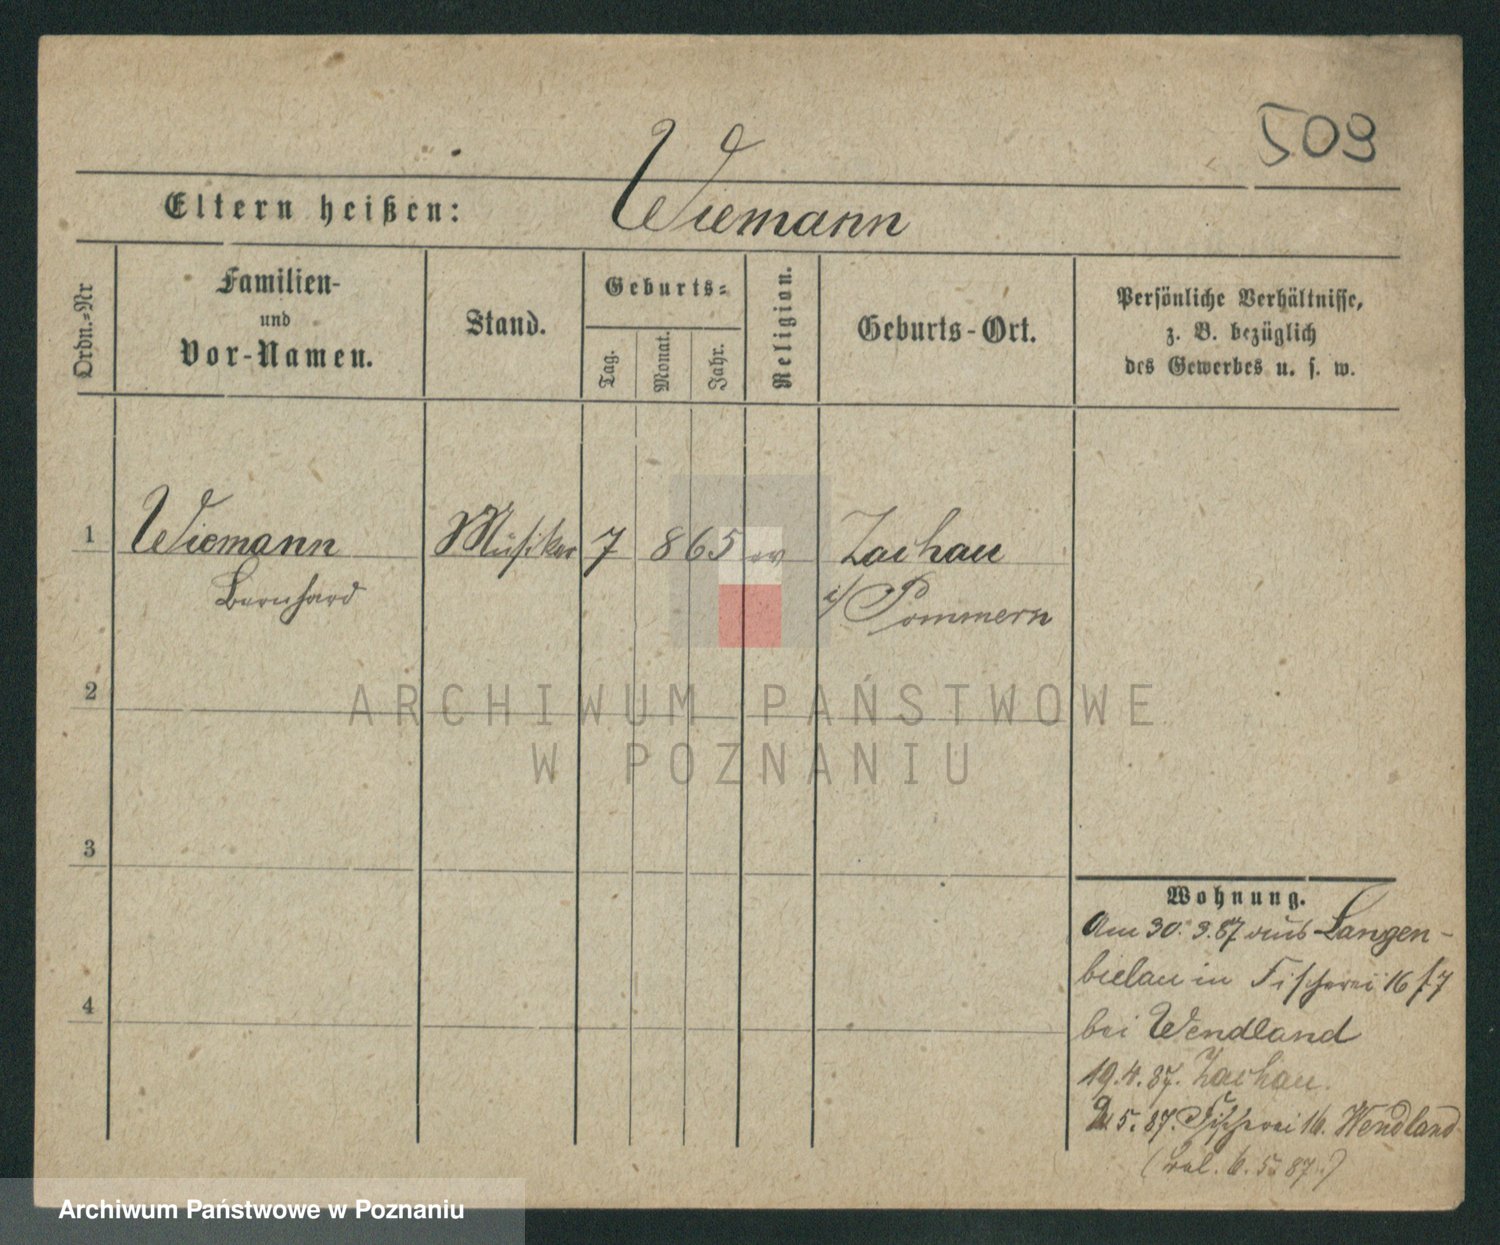 509
Eltern heißen: Wiemann
Ordn.-Nr
Familien-
und
Vor-Namen.
Stand.
Geburts-
Tag.
Monat.
Jahr.
Religion.
Geburts-Ort.
Persönliche Verhältnisse,
z. B. bezüglich
des Gewerbes u. s. w.
1 Wiemann Musiker 7 8 65 ev Zachau
Bernhard i/ Pommern
2
ARCHIWUM PAŃSTWOWE
W POZNANIU
3
4
Wohnung.
Am 30. 3. 87 aus Langen-
bielau in Fischerei 16/17
bei Wendland
19. 4. 87. Zachau.
5. 87. Fischerei 16. Wendland
6. 5. 87.)
Archiwum Państwowe w Poznaniu